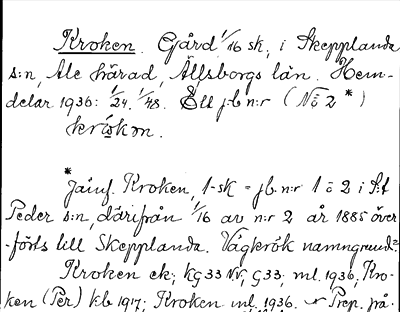 Kroken. Gård 1/16 sk. i Skepplanda
s:n, Ale härad, Älfsborgs län. Hem-
delar 1936: 1/24. 1/48. Ett j:b n:r (No 2 *)
*
Jämf. Kroken, 1-sk = jb. n:r 1 o 2 i S:t
Peder s:n, därifrån 1/16 av n:r 2 år 1885 över
-förts till Skepplanda. Vägkrök namngrund?
Kroken ek; KG33 NV; G33; ml. 1936; Kro-
ken (Per) kb 1917; Kroken ml. 1936. Prep. på.